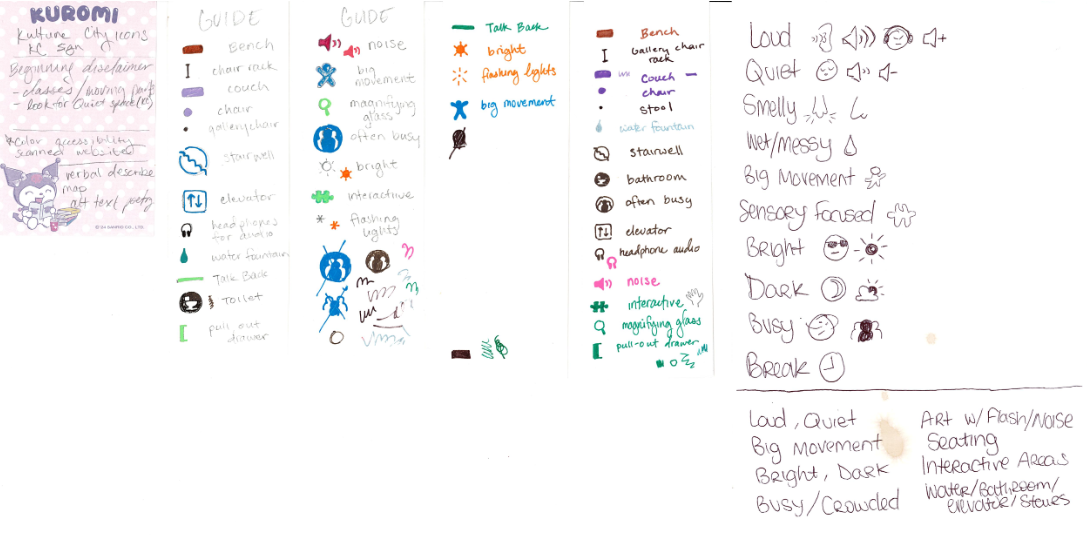 KUROMI
Kulture City icons
KC Sgn
Beginning disclaimer
- classes/moving parts
- look for Quiet space(m)
*Color accessibility
scanned websited
verbal describe
map
alt text poetry
GUIDE
Bench
chair rack
couch
chair
gallery chair
stairwell
elevator
headphones
for audio
water fountain
Talk Back
Toilet
pull out
drawer
GUIDE
noise
big
movement
magnifying
glass
often busy
bright
interactive
flashing
lights
Talk Back
bright
flashing lights
big movement
Bench
Gallery chair
rack
Couch
chair
stool
water fountain
stairwell
bathroom
often busy
elevator
headphone audio
noise
interactive
magnifying glass
pull-out drawer
Loud
Quiet
Smelly
Wet/Messy
Big Movement
Sensory Focused
Bright
Dark
Busy
Break
Loud, Quiet
Big Movement
Bright, Dark
Busy/Crowded
Art w/Flash/Noise
Seating
Interactive Areas
Water/Bathroom/
elevator/Stairs